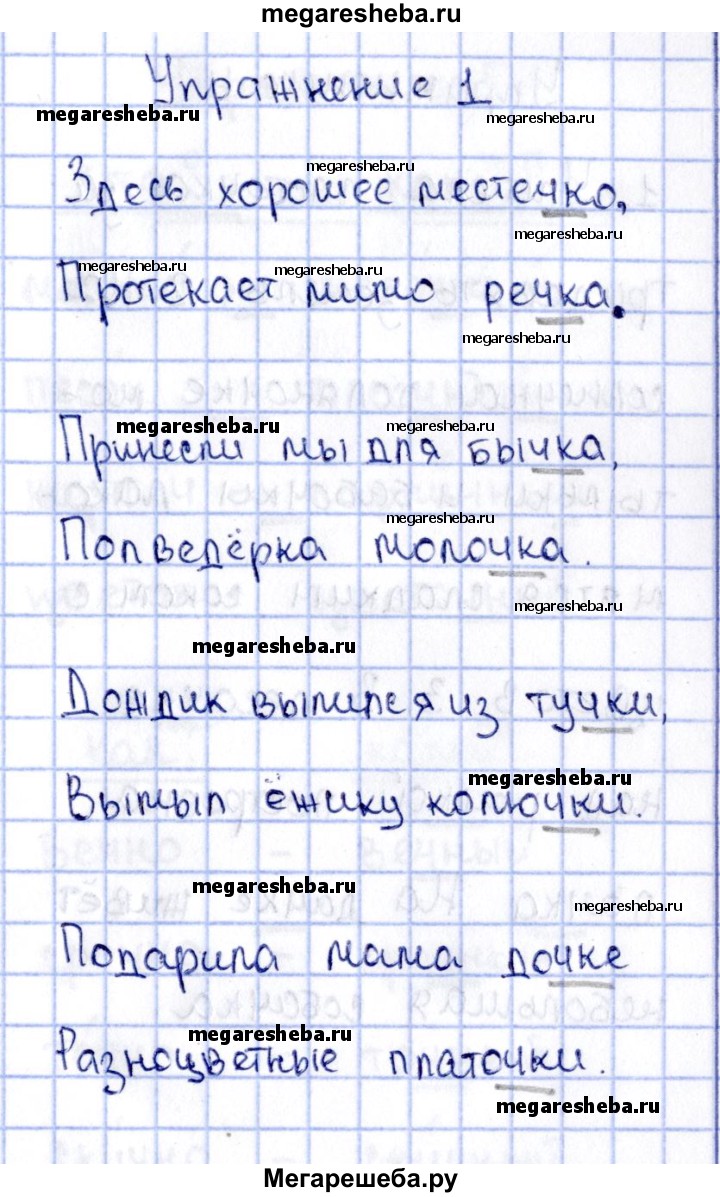 megaresheba.ru
Упражнение 1
megaresheba.ru
megaresheba.ru
megaresheba.ru
Здесь хорошее местечко,
megaresheba.ru
megaresheba.ru
megaresheba.ru
Протекает мимо речка.
megaresheba.ru
megaresheba.ru
megaresheba.ru
Принесли мы для бычка,
megaresheba.ru
Полведёрка молочка.
megaresheba.ru
megaresheba.ru
Дождик вылился из тучки,
megaresheba.ru
Вымыл ёжику колючки.
megaresheba.ru
megaresheba.ru
Подарила мама дочке
megaresheba.ru
Разноцветные платочки.
megaresheba.ru
Мегарешеба.ру